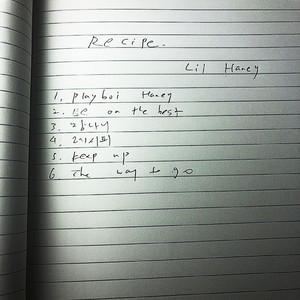 Recipe.
Lil Haney
1. playboi Haney
2. on the best
3. 잘나가
4. 레시피
5. keep up
6. The way to go